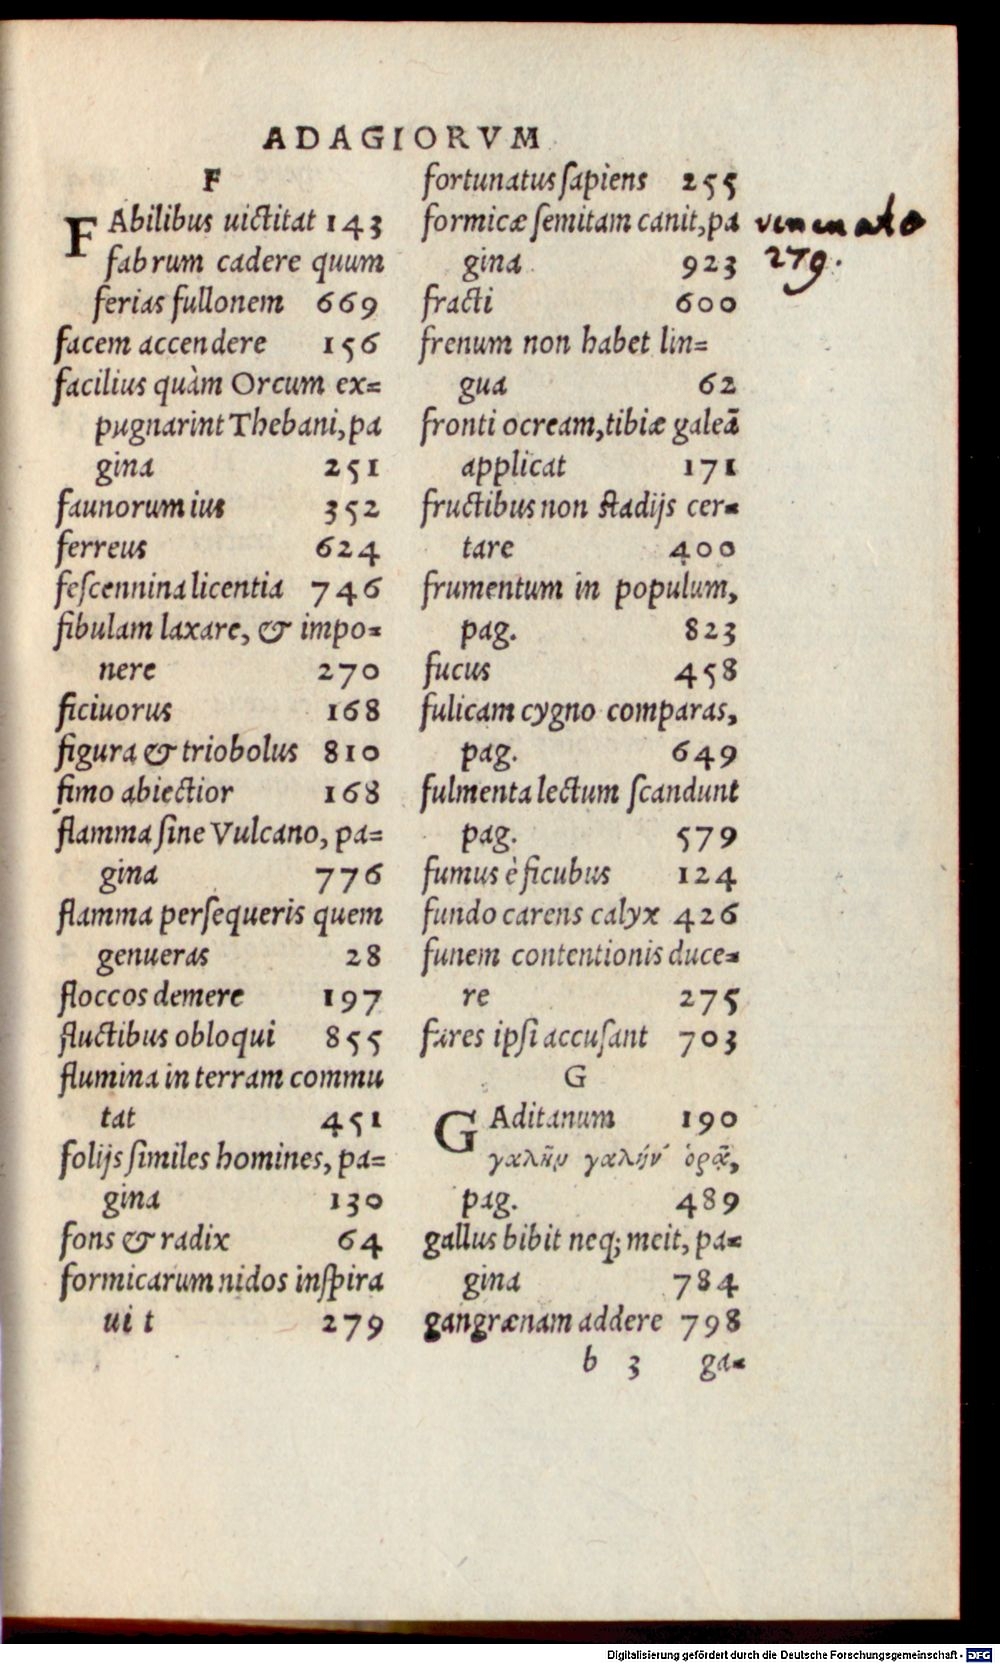 ADAGIORVM
F
FAbilibus uictitat 143
fabrum cadere quum
ferias fullonem 669
facem accendere 156
facilius quàm Orcum ex=
pugnarint Thebani, pa
gina 251
faunorum ius 352
ferreus 624
fescennina licentia 746
fibulam laxare, & impo=
nere 270
ficiuorus 168
figura & triobolus 810
fimo abiectior 168
flamma sine Vulcano, pa=
gina 776
flamma persequeris quem
genueras 28
floccos demere 197
fluctibus obloqui 855
flumina in terram commu
tat 451
folijs similes homines, pa=
gina 130
fons & radix 64
formicarum nidos inspira
uit 279
fortunatus sapiens 255
formicæ semitam canit, pa
gina 923
fracti 600
frenum non habet lin=
gua 62
fronti ocream, tibiæ galeã
applicat 171
fructibus non stadijs cer=
tare 400
frumentum in populum,
pag. 823
fucus 458
fulicam cygno comparas,
pag. 649
fulmenta lectum scandunt
pag. 579
fumus è ficubus 124
fundo carens calyx 426
funem contentionis duce=
re 275
fures ipsi accusant 703
G
GAditanum 190
γαλῆν ὁρᾷ,
pag. 489
gallus bibit neq; meit, pa=
gina 784
gangrænam addere 798
b 3 ga=
279.
Digitalisierung gefördert durch die Deutsche Forschungsgemeinschaft - DFG